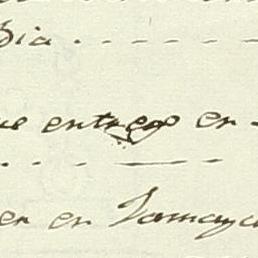 Dia . . - - - - -
ue entrego en
. . . - ——— -
en en Jamayca